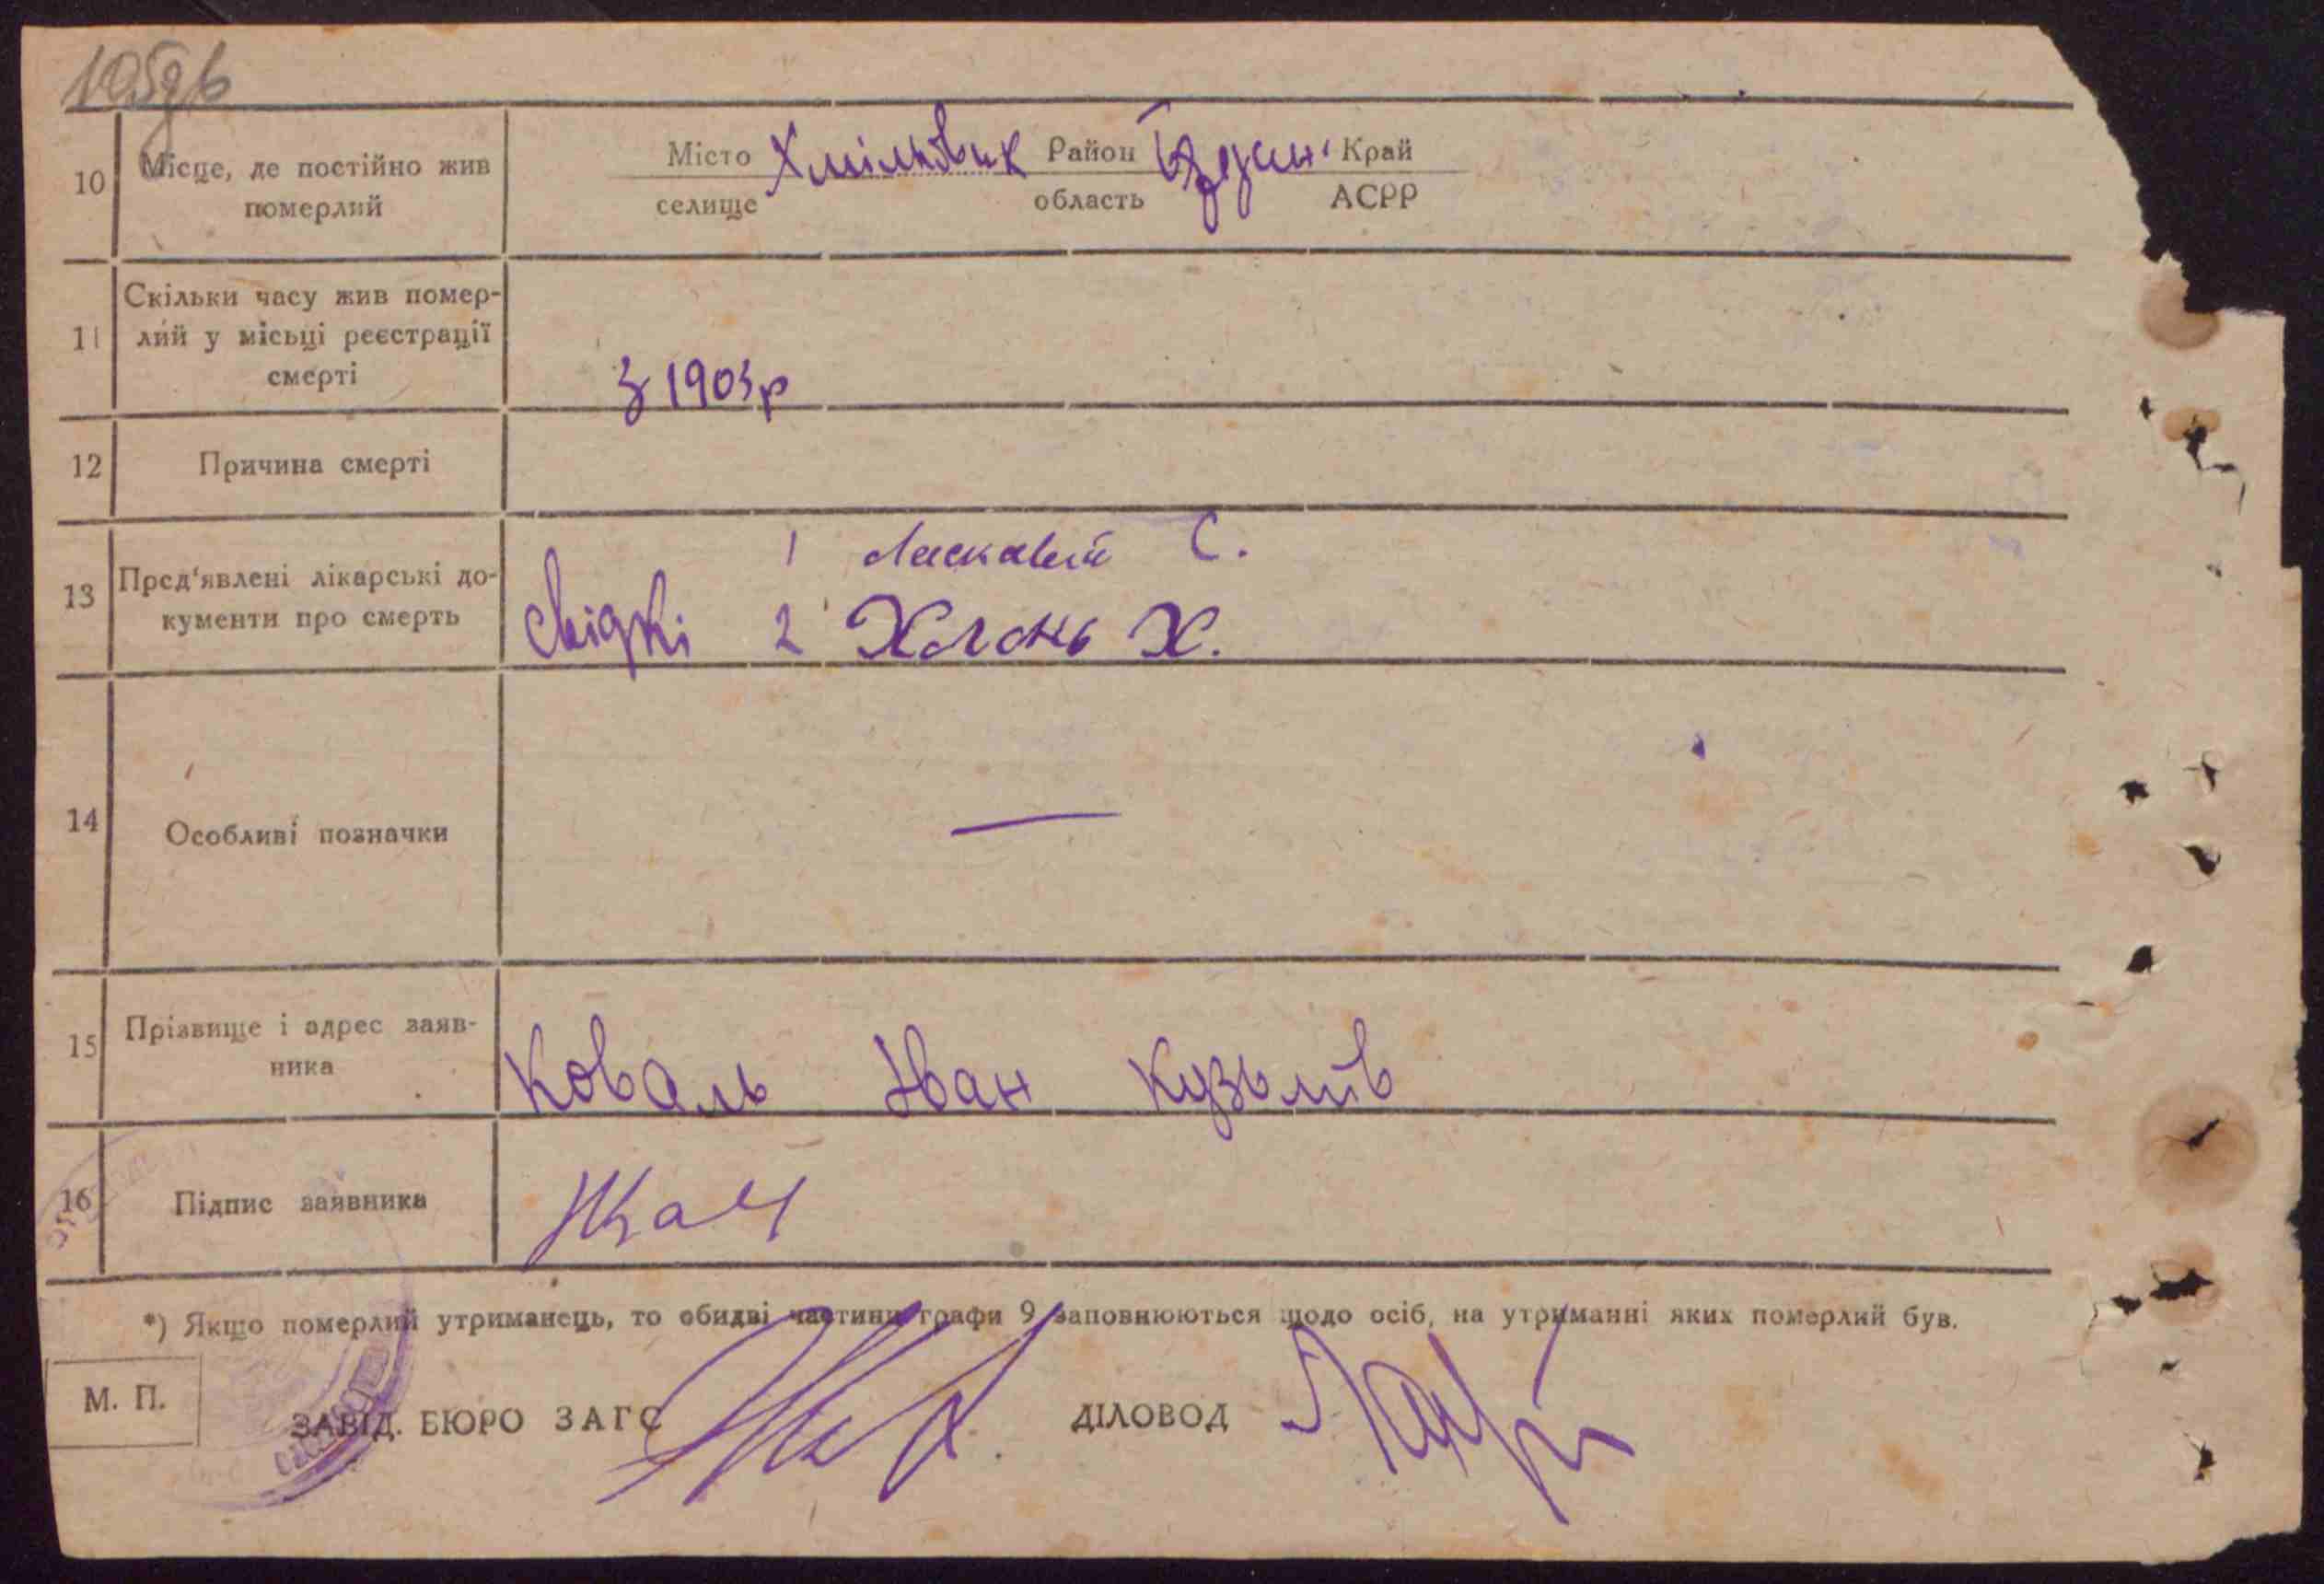 105дв
10 Місце, де постійно жив померлий
Місто Хмільовик Район Край
селище область АСРР
11 Скільки часу жив помер-
лий у місьці реєстрації
смерті
З 1903р
12 Причина смерті
13 Пред'явлені лікарські до-
кументи про смерть
1 Ласкавий С.
свідкі 2 Холонь Х.
14 Особливі позначки
—
15 Прізвище і адрес заяв-
ника
Коваль Іван Кузьмів
16 Підпис заявника
*) Якщо померлий утриманець, то обидві частини графи 9 заповнюються щодо осіб, на утриманні яких померлий був.
М. П.
ЗАВІД. БЮРО ЗАГС ДІЛОВОД